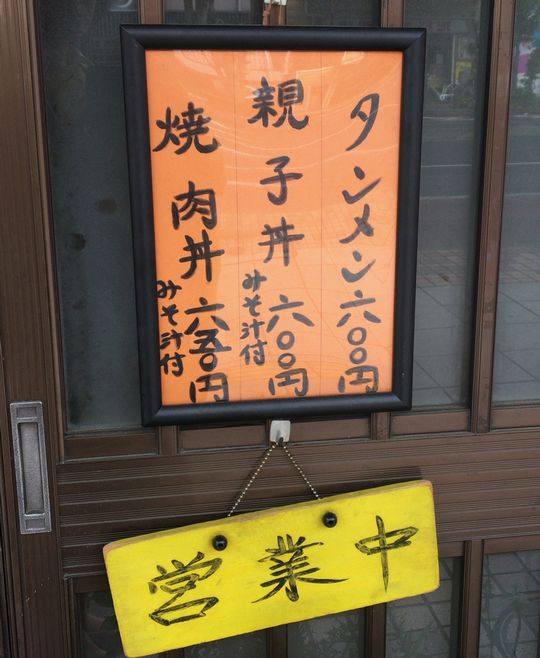 タンメン六〇〇円
親子丼六〇〇円
みそ汁付
焼肉丼六五〇円
みそ汁付
営業中